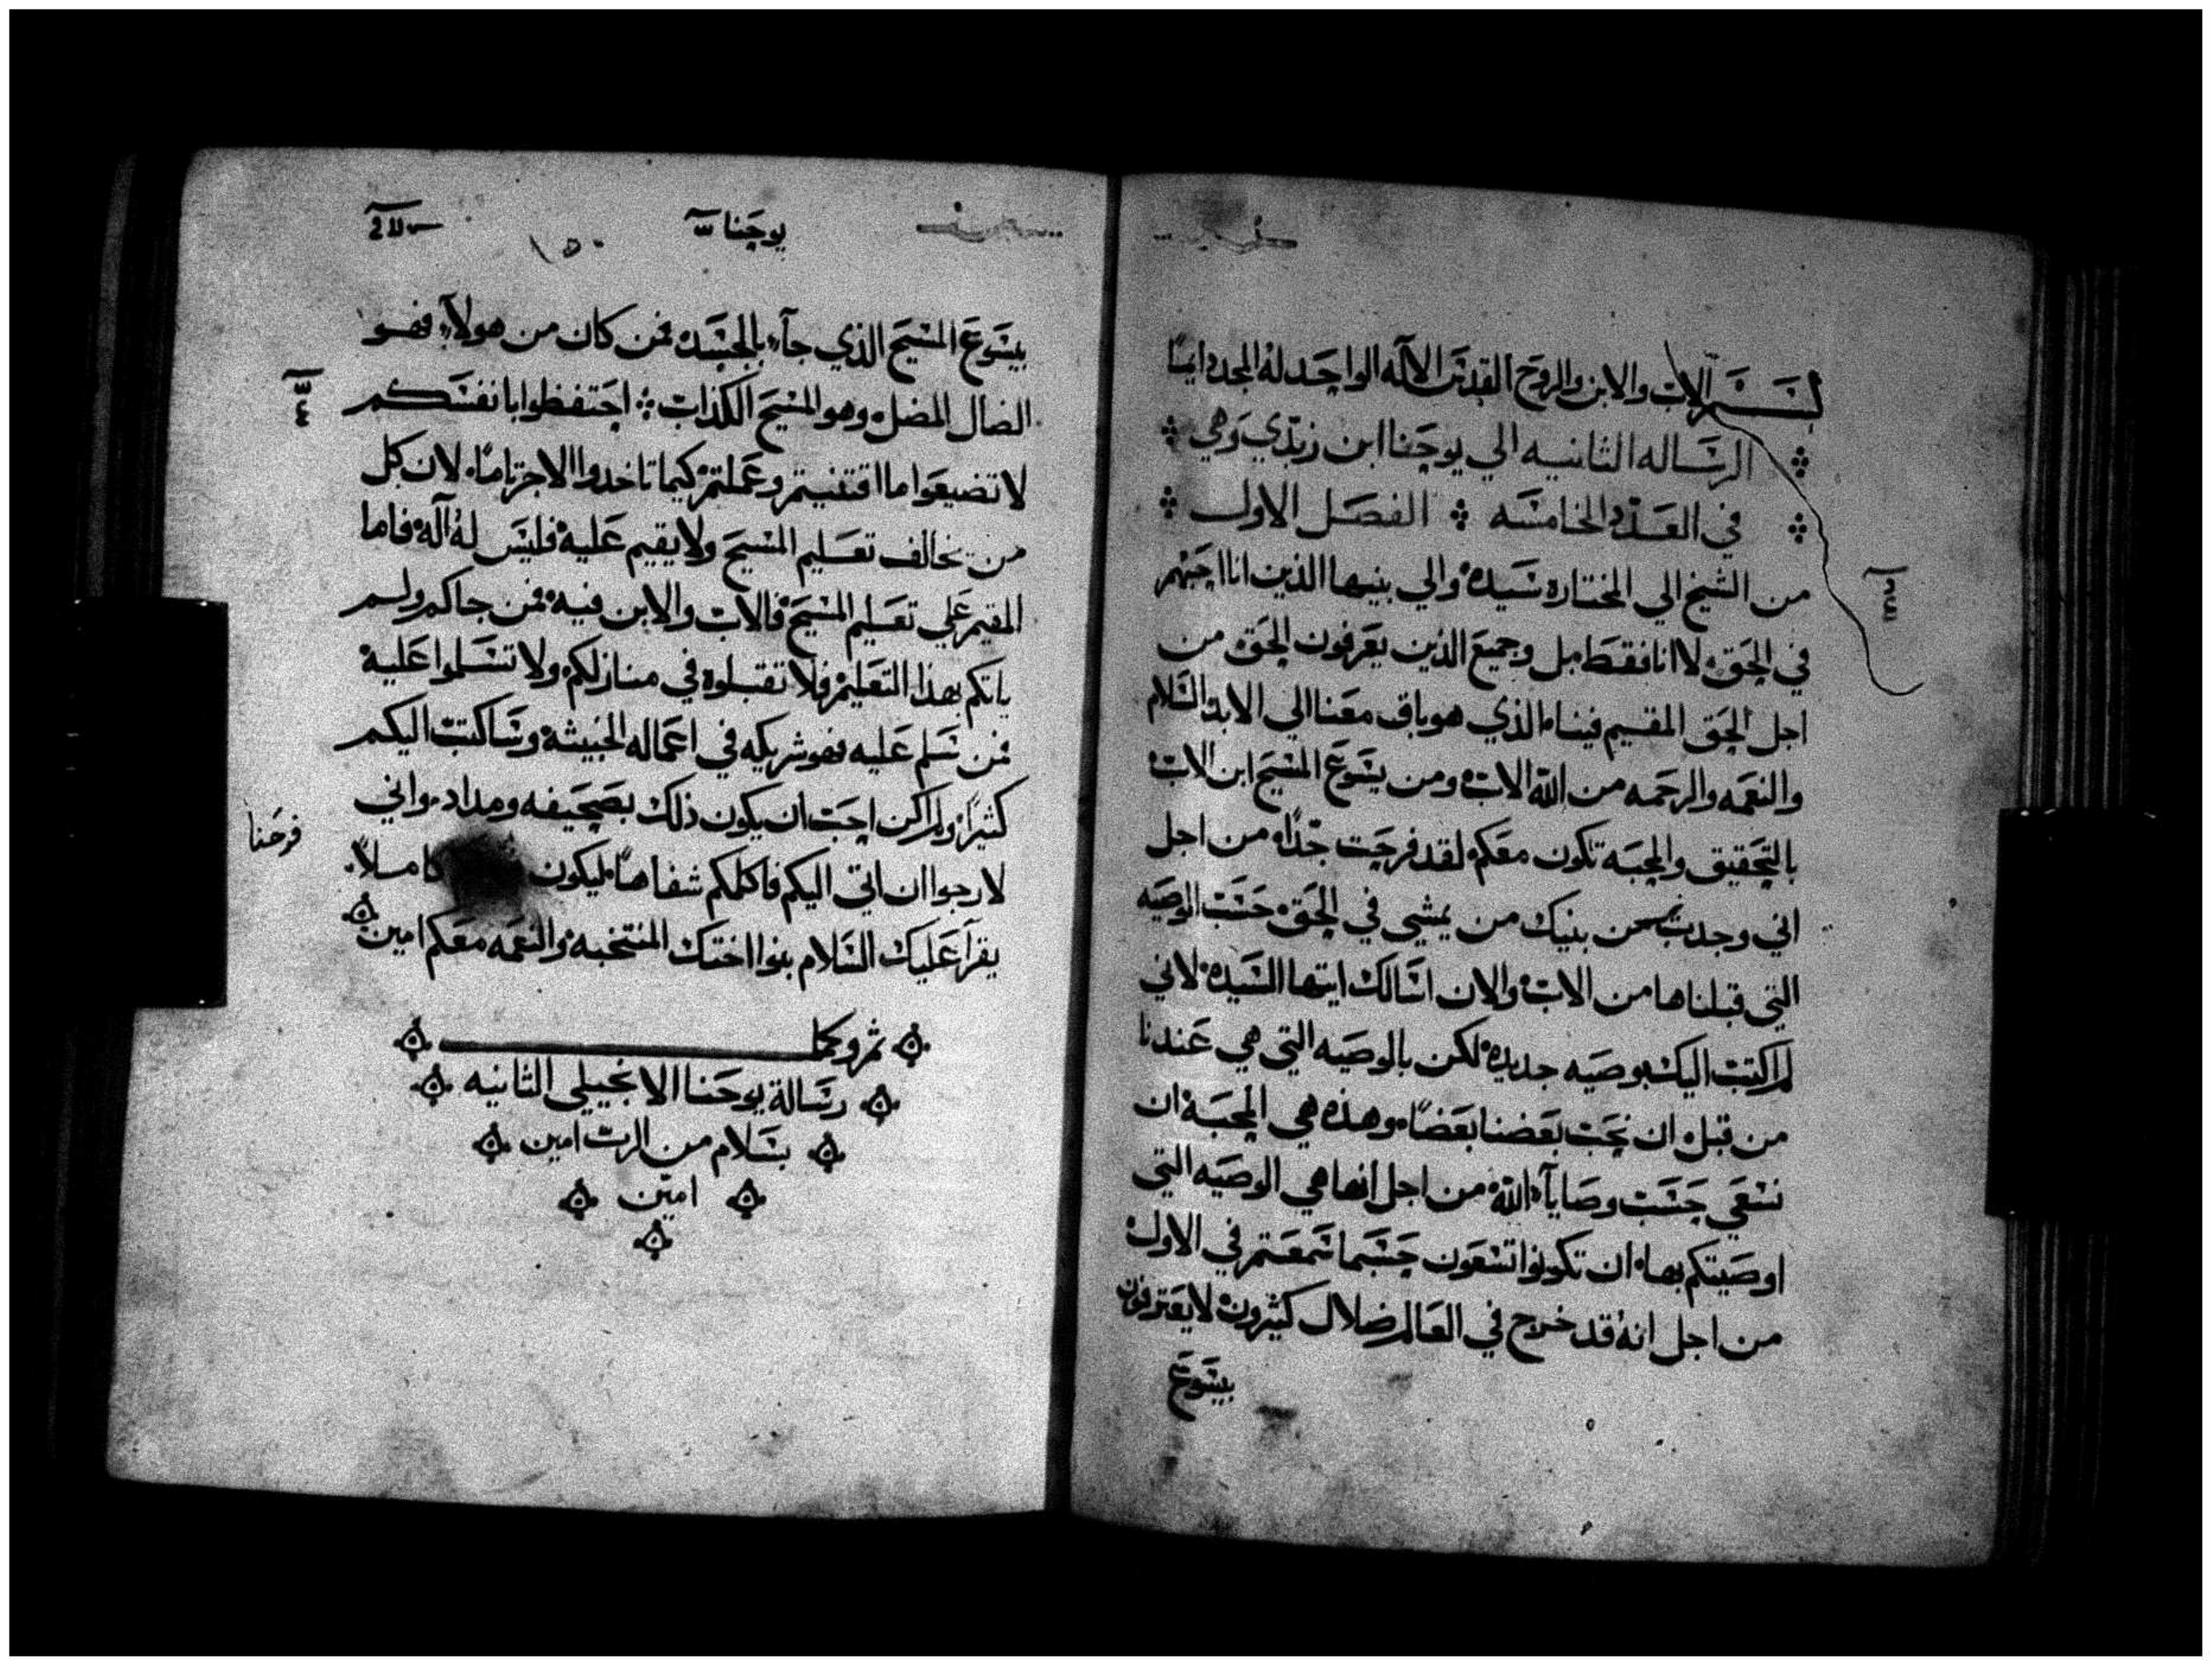 بســـم الاب والابن والروح القدس الاله الواحد له المجد دايمًا
الرساله الثانيه الي يوحنا ابن زبدي وهي
في العدد الخامسه الفصل الاول
من الشيخ الي المختاره سيده والي بنيها الذين انا احبهم
في الحق لا انا فقط بل وجميع الذين يعرفون الحق من
اجل الحق المقيم فينا الذي هو باق معنا الي الابد السلام
والنعمه والرحمه من الله الاب ومن يسوع المسيح ابن الاب
بالتحقيق والمحبه تكون معكم لقد فرحت جدًا من اجل
اني وجدت من بنيك من يمشي في الحق حسب الوصيه
التي قبلناها من الاب والان اسالك ايتها السيده لاني
لم اكتب اليك بوصيه جديده لكن بالوصيه التي هي عندنا
من قبل ان نحب بعضنا بعضًا وهذه هي المحبه ان
نسعي حسب وصايآء الله من اجل انها هي الوصيه التي
اوصيتكم بها ان تكونوا تسعون حسبما سمعتم في الاول
من اجل انه قد خرج في العالم ضلال كثيرون لا يعترفون
بيسوع
يوحنا
١٥٠
بيسوع المسيح الذي جآء بالجسد فمن كان من هولآء فهو
الضال المضل وهو المسيح الكذاب احتفظوا بانفسكم
لا تضيعوا ما اقتنيتم وعملتم كيما تاخدوا الاجر تامًا لان كل
من يخالف تعليم المسيح ولا يقيم عليه فليس له اله فاما
المقيم علي تعليم المسيح فالاب والابن فيه فمن جاكم ولم
ياتكم بهذا التعليم فلا تقبلوه في منازلكم ولا تسلموا عليه
فمن سلم عليه فهو شريكه في اعماله الخبيثه وساكتب اليكم
كثيرًا ولم اكن احب ان يكون ذلك بصحيفه ومداد واني
لارجوا ان اتي اليكم فاكلمكم شفاهًا ليكون كاملاً
فرحنا
يقرآ عليك السلام بنوا اختك المنتخبه والنعمه معكم امين
تم وكمل
رسالة يوحنا الانجيلي الثانيه
بسلام من الرب امين
امين